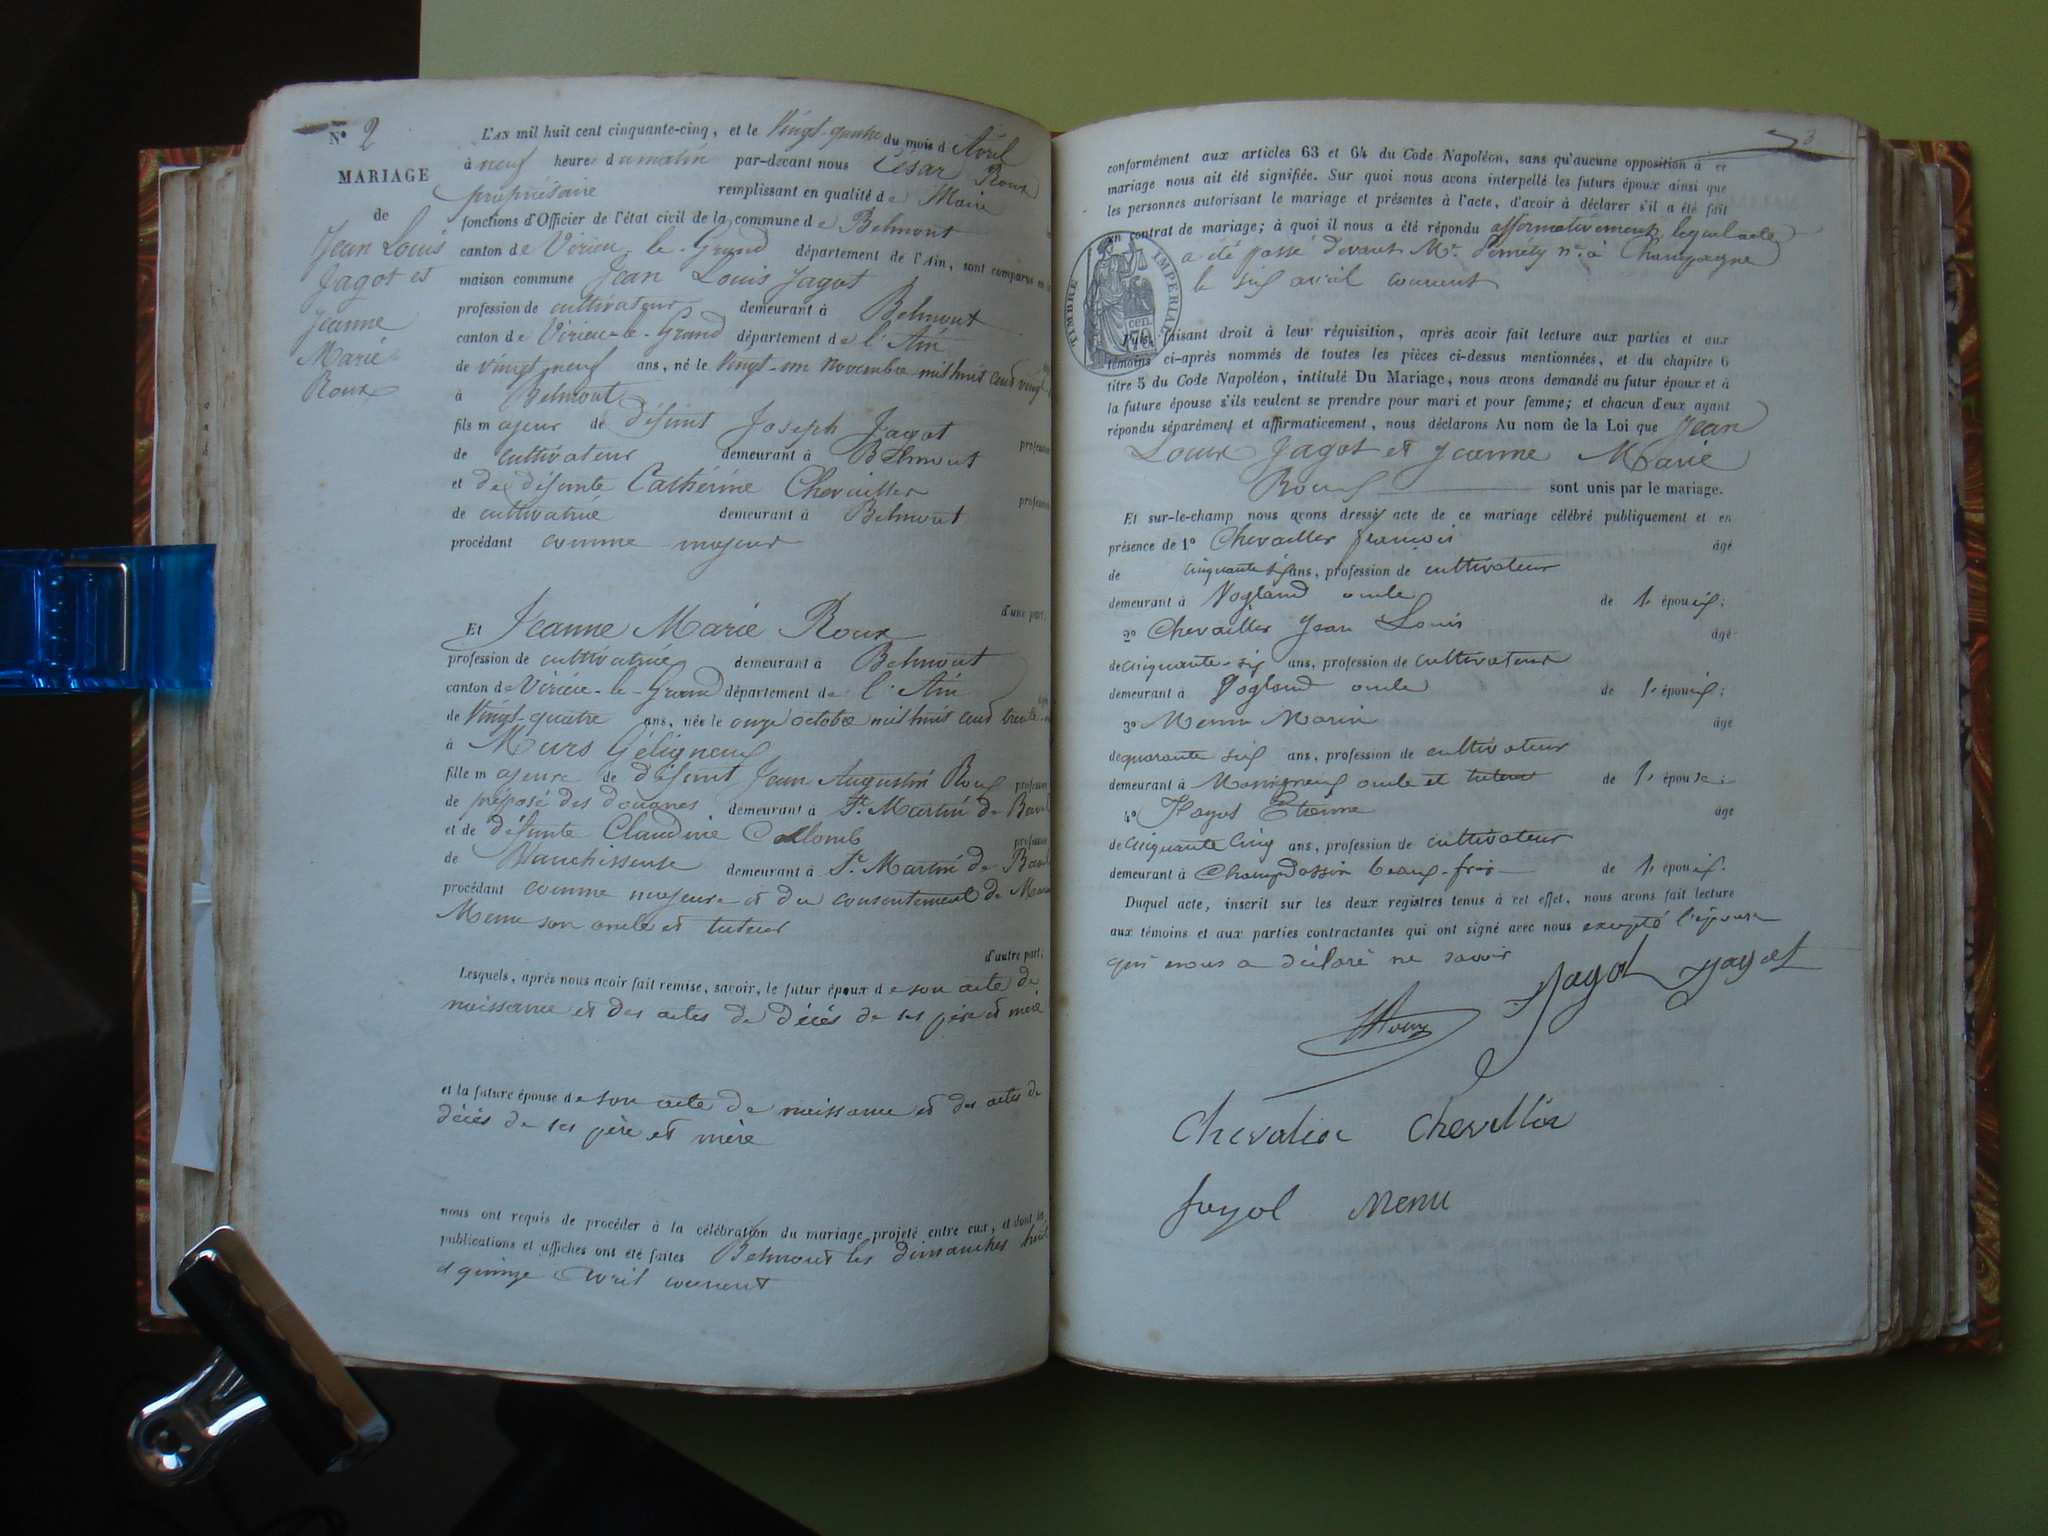 N° 2
MARIAGE
de
Jean Louis
Jagot et
Jeanne
Marie
Roux
L'AN mil huit cent cinquante-cinq, et le Vingt-quatre du mois d Avril
à neuf heures d u matin par-devant nous César Roux
propriétaire remplissant en qualité de Maire
fonctions d'Officier de l'état civil de la commune de Belmont
canton de Virieu-le-Grand département de l'Ain, sont comparus en
maison commune Jean Louis Jagot
profession de cultivateur demeurant à Belmont
canton de Virieu-le-Grand département de l'Ain
de vingt neuf ans, né le Vingt-un novembre mil huit cent vingt
à Belmont
fils majeur de défunt Joseph Jagot profession
de cultivateur demeurant à Belmont
et de défunte Catherine Chevailler profession
de cultivatrice demeurant à Belmont
procédant comme majeur
d'une part;
Et Jeanne Marie Roux
profession de cultivatrice demeurant à Belmont
canton de Virieu-le-Grand département de l'Ain
de Vingt-quatre ans, née le onze octobre mil huit cent trente
à Murs Géligneux
fille majeure de défunt Jean Augustin Roux
de préposé des douanes demeurant à St. Martin de
et de défunte Claudine Collomb
de Blanchisseuse demeurant à St. Martin de
procédant comme majeure et du consentement de
Menu son oncle et tuteur
d'autre part;
Lesquels, après nous avoir fait remise, savoir, le futur époux de son acte de
naissance et des actes de décés de ses père et mère
et la future épouse de son acte de naissance et des actes de
décés de ses père et mère
nous ont requis de procéder à la célébration du mariage projeté entre eux, et dont les
publications et affiches ont été faites Belmont les dimanches huit
et quinze avril courant
3
conformément aux articles 63 et 64 du Code Napoléon, sans qu'aucune opposition à ce
mariage nous ait été signifiée. Sur quoi nous avons interpellé les futurs époux ainsi que
les personnes autorisant le mariage et présentes à l'acte, d'avoir à déclarer s'il a été fait
un contrat de mariage; à quoi il nous a été répondu affirmativement lequel acte
a été passé devant Me. à Champagne
le six avril courant
TIMBRE IMPERIAL
70 cen.
faisant droit à leur réquisition, après avoir fait lecture aux parties et aux
témoins ci-après nommés de toutes les pièces ci-dessus mentionnées, et du chapitre 6
titre 5 du Code Napoléon, intitulé Du Mariage, nous avons demandé au futur époux et à
la future épouse s'ils veulent se prendre pour mari et pour femme; et chacun d'eux ayant
répondu séparément et affirmativement, nous déclarons Au nom de la Loi que Jean
Louis Jagot et Jeanne Marie
Roux sont unis par le mariage.
Et sur-le-champ nous avons dressé acte de ce mariage célébré publiquement et en
présence de 1° Chevailler François âgé
de cinquante six ans, profession de cultivateur
demeurant à Vogland oncle de l'époux;
2° Chevailler Jean Louis âgé
de cinquante-six ans, profession de cultivateur
demeurant à Vogland oncle de l'époux;
3° Menu Marin âgé
de quarante six ans, profession de cultivateur
demeurant à oncle et tuteur de l'épouse;
4° Etienne âgé
de cinquante cinq ans, profession de cultivateur
demeurant à Champdossin beau-frère de l'époux.
Duquel acte, inscrit sur les deux registres tenus à cet effet, nous avons fait lecture
aux témoins et aux parties contractantes qui ont signé avec nous excepté l'épouse
qui nous a déclaré ne savoir
Jagot
Roux
Chevalier Chevallier
Menu